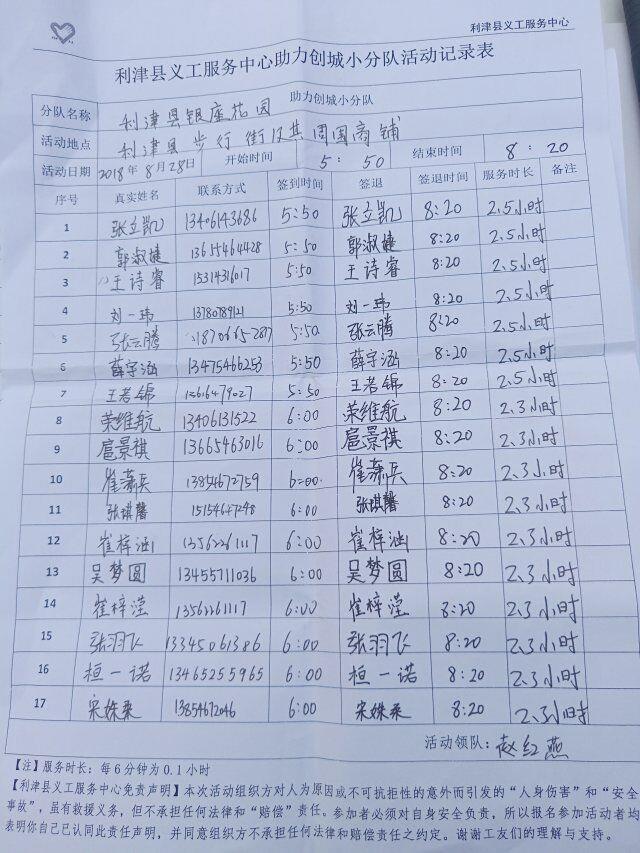 利津县义工服务中心
利津县义工服务中心助力创城小分队活动记录表
分队名称 利津县银座花园 助力创城小分队
活动地点 利津县步行街及其周围商铺
活动日期 2018年8月28日 开始时间 5:50 结束时间 8:20
序号 真实姓名 联系方式 签到时间 签退 签退时间 服务时长 备注
1 张立凯 13406143686 5:50 张立凯 8:20 2.5小时
2 郭淑婕 13615464428 5:50 郭淑婕 8:20 2.5小时
3 王诗睿 15314316017 5:50 王诗睿 8:20 2.5小时
4 刘一玮 13780789121 5:50 刘一玮 8:20 2.5小时
5 张云腾 5:50 张云腾 8:20 2.5小时
6 薛宇涵 13475466253 5:50 薛宇涵 8:20 2.5小时
7 王若锦 13616479027 5:50 王若锦 8:20 2.5小时
8 荣维航 13406131522 6:00 荣维航 8:20 2.3小时
9 扈景祺 13665463016 6:00 扈景祺 8:20 2.3小时
10 崔萧兵 13854672759 6:00 崔萧兵 8:20 2.3小时
11 张琪馨 15154647248 6:00 张琪馨 8:20 2.3小时
12 崔梓涵 13562261117 6:00 崔梓涵 8:20 2.3小时
13 吴梦圆 13455711036 6:00 吴梦圆 8:20 2.3小时
14 崔梓滢 13562261117 6:00 崔梓滢 8:20 2.3小时
15 张羽飞 13345061386 6:00 张羽飞 8:20 2.3小时
16 桓一诺 13465255965 6:00 桓一诺 8:20 2.3小时
17 宋姝柔 13854672046 6:00 宋姝柔 8:20 2.3小时
活动领队：赵红燕
【注】服务时长：每6分钟为0.1小时
【利津县义工服务中心免责声明】本次活动组织方对人为原因或不可抗拒性的意外而引发的“人身伤害”和“安全
事故”，虽有救援义务，但不承担任何法律和“赔偿”责任。参加者必须对自身安全负责，所以报名参加活动者均
表明你自己已认同此责任声明，并同意组织方不承担任何法律和赔偿责任之约定。谢谢工友们的理解与支持。